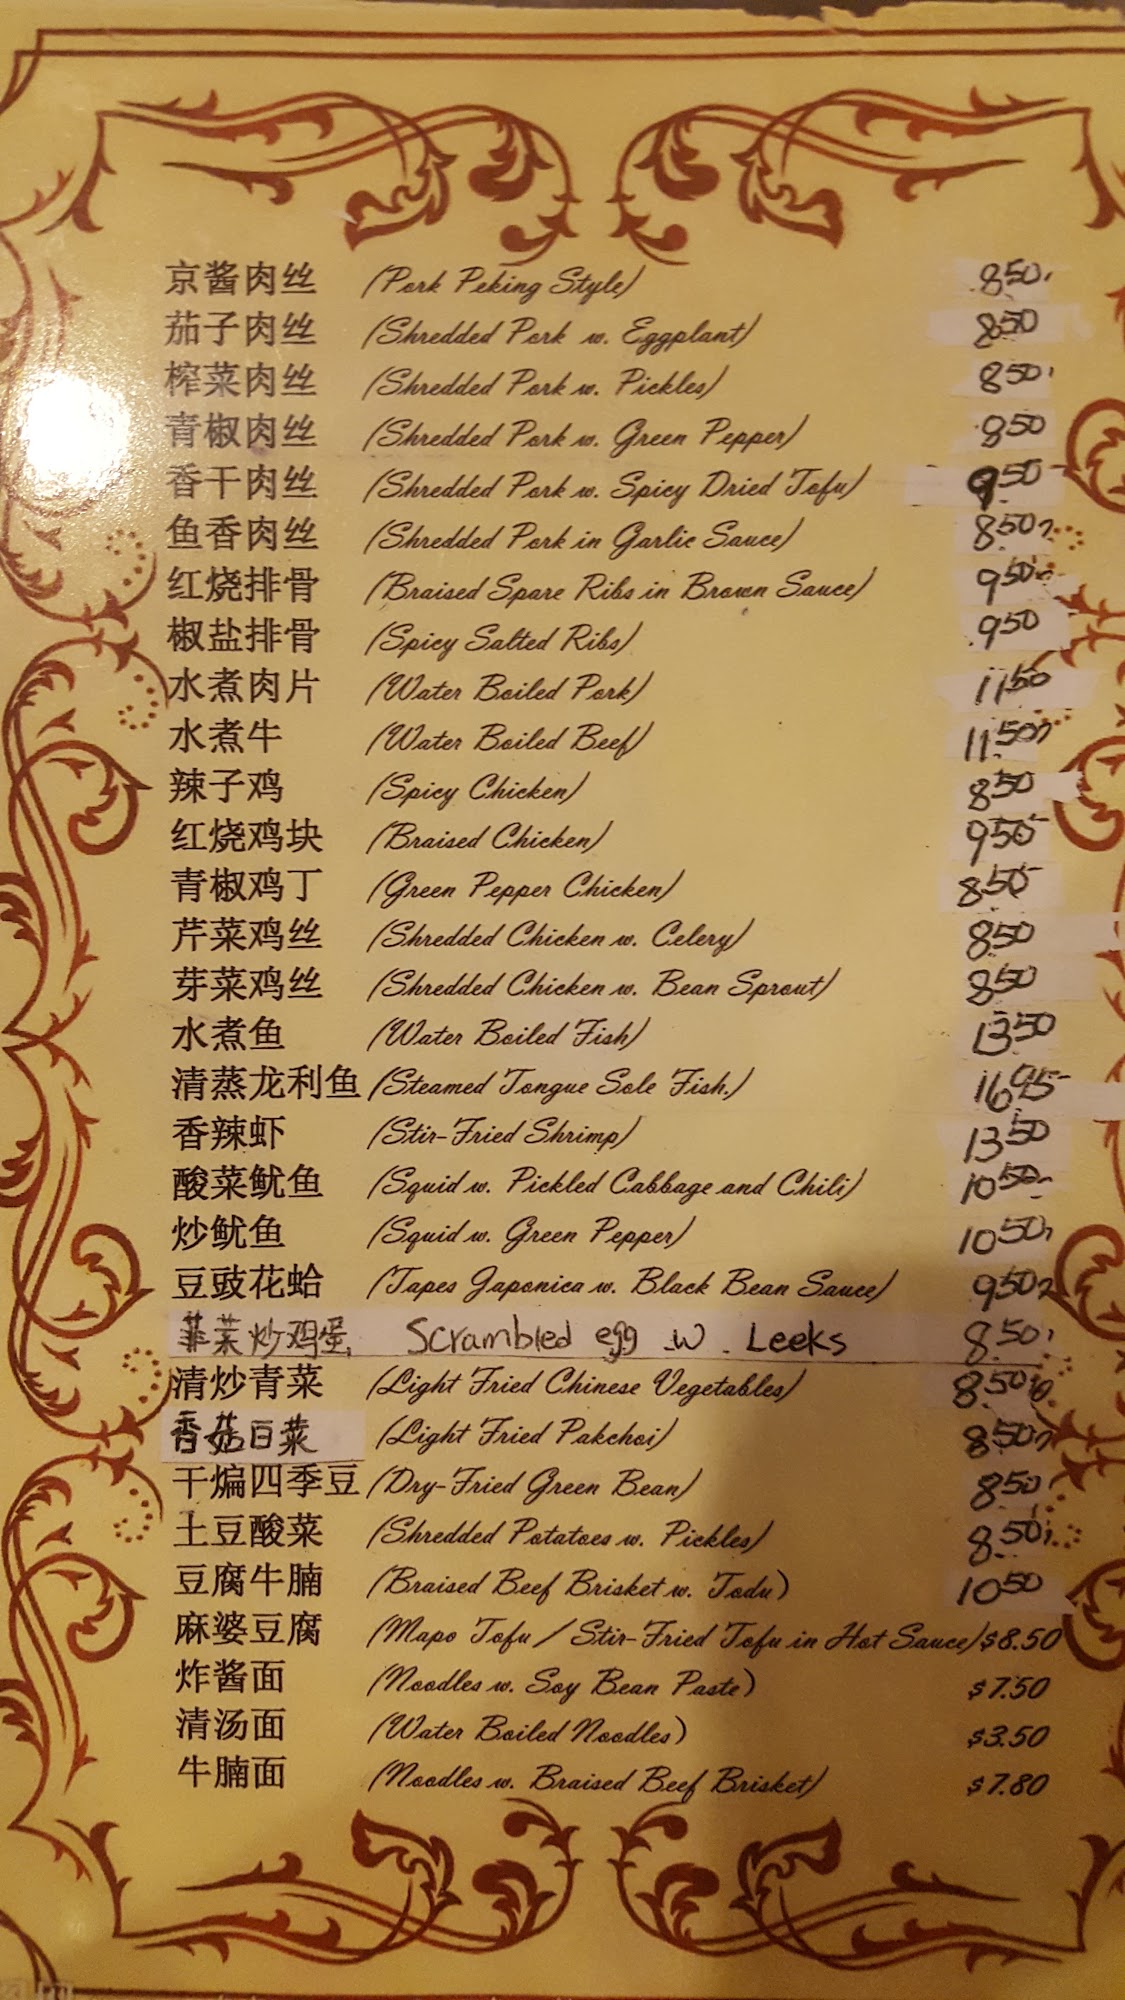 京酱肉丝 (Pork Peking Style) 8.50
茄子肉丝 (Shredded Pork w. Eggplant) 8.50
榨菜肉丝 (Shredded Pork w. Pickles) 8.50
青椒肉丝 (Shredded Pork w. Green Pepper) 8.50
香干肉丝 (Shredded Pork w. Spicy Dried Tofu) 9.50
鱼香肉丝 (Shredded Pork in Garlic Sauce) 8.50
红烧排骨 (Braised Spare Ribs in Brown Sauce) 9.50
椒盐排骨 (Spicy Salted Ribs) 9.50
水煮肉片 (Water Boiled Pork) 11.50
水煮牛 (Water Boiled Beef) 11.50
辣子鸡 (Spicy Chicken) 8.50
红烧鸡块 (Braised Chicken) 9.50
青椒鸡丁 (Green Pepper Chicken) 8.50
芹菜鸡丝 (Shredded Chicken w. Celery) 8.50
芽菜鸡丝 (Shredded Chicken w. Bean Sprout) 8.50
水煮鱼 (Water Boiled Fish) 13.50
清蒸龙利鱼 (Steamed Tongue Sole Fish.) 16.95
香辣虾 (Stir-Fried Shrimp) 13.50
酸菜鱿鱼 (Squid w. Pickled Cabbage and Chili) 10.50
炒鱿鱼 (Squid w. Green Pepper) 10.50
豆豉花蛤 (Tapes Japonica w. Black Bean Sauce) 9.50
韮菜炒鸡蛋 Scrambled egg w. Leeks 8.50
清炒青菜 (Light Fried Chinese Vegetables) 8.50
香菇白菜 (Light Fried Pakchoi) 8.50
干煸四季豆 (Dry-Fried Green Bean) 8.50
土豆酸菜 (Shredded Potatoes w. Pickles) 8.50
豆腐牛腩 (Braised Beef Brisket w. Todu) 10.50
麻婆豆腐 (Mapo Tofu / Stir-Fried Tofu in Hot Sauce) $8.50
炸酱面 (Noodles w. Soy Bean Paste) $7.50
清汤面 (Water Boiled Noodles) $3.50
牛腩面 (Noodles w. Braised Beef Brisket) $7.80